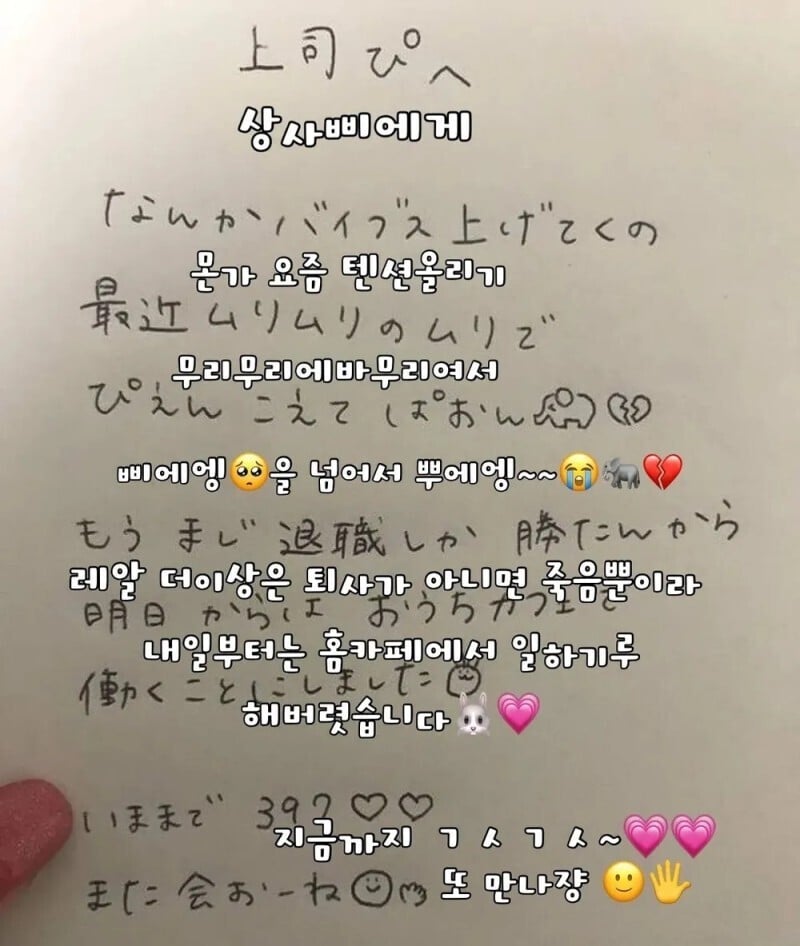 上司ぴへ
상사삐에게
なんかバイブス上げてくの
몬가 요즘 텐션올리기
最近ムリムリのムリで
무리무리에바무리여서
ぴえん こえて ぱおん
삐에엥🥺을 넘어서 뿌에엥~~😭🐘💔
もう まじ 退職しか 勝たんから
레알 더이상은 퇴사가 아니면 죽음뿐이라
明日 からは おうちカフェで
내일부터는 홈카페에서 일하기루
働くことにしました
해버렸습니다🐰💗
いままで ♡♡
지금까지 ㄱㅅㄱㅅ~💗💗
また会おーね
또 만나쟝 🙂🖐